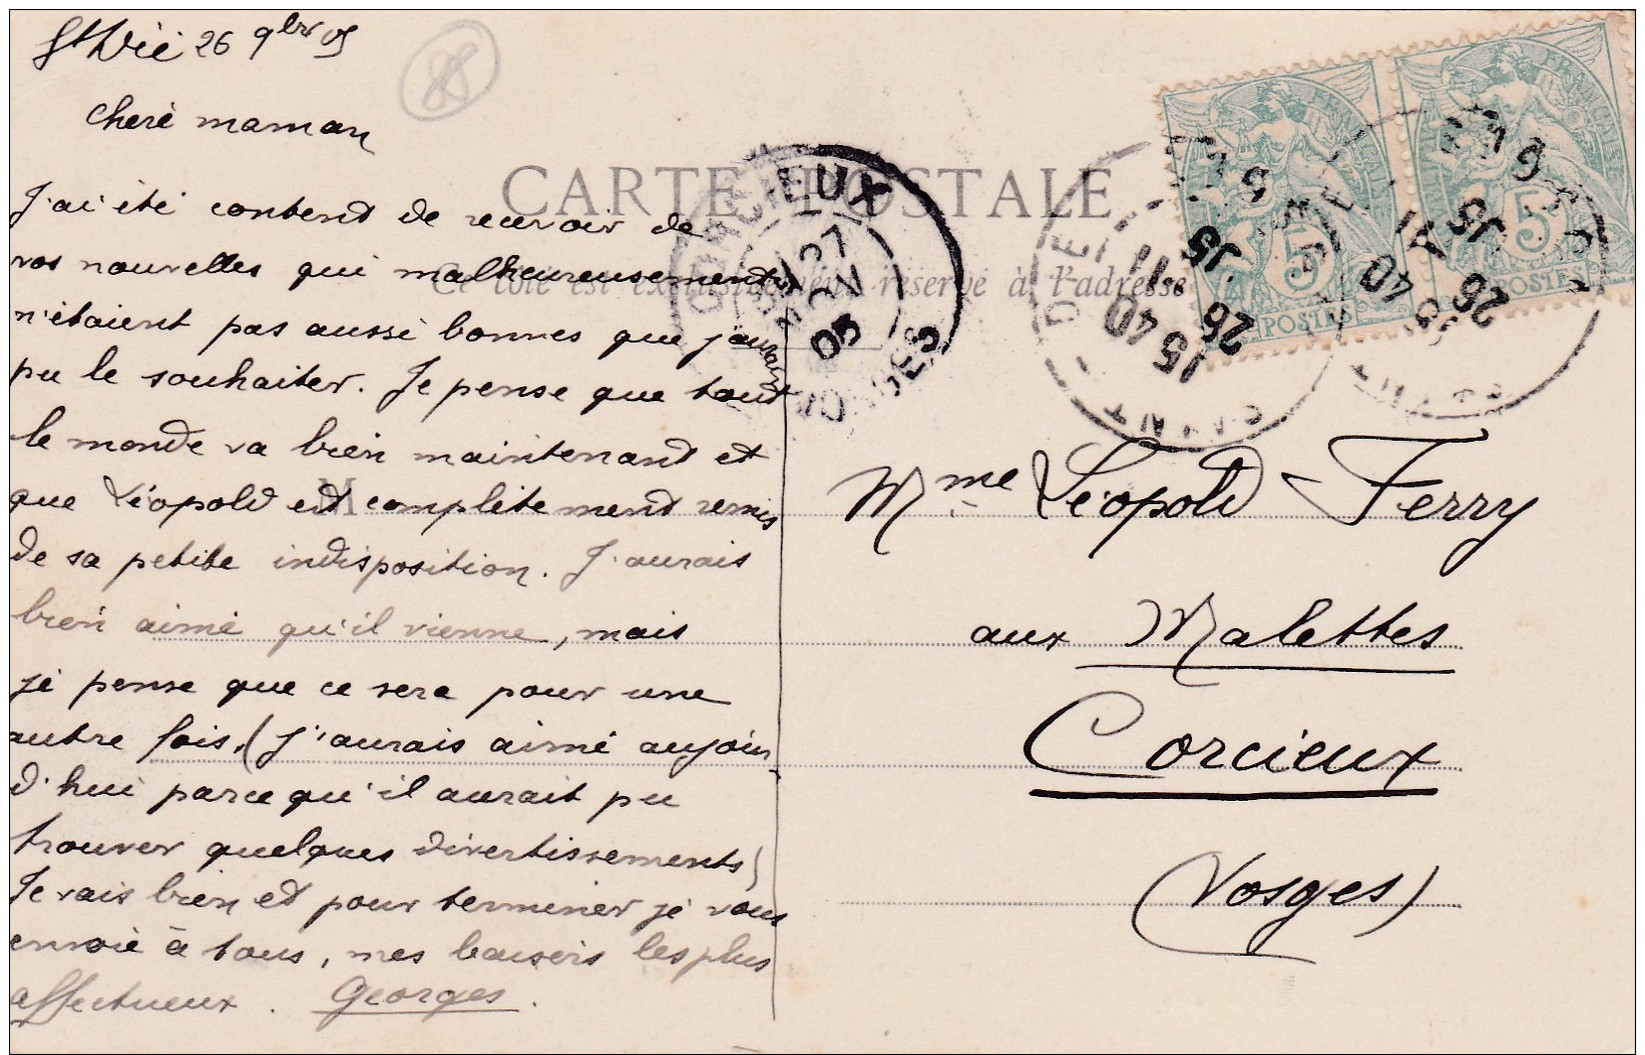 St Dié 26 9bre 05
88
chère maman
J'ai été content de recevoir de
vos nouvelles qui malheureusement
n'étaient pas aussi bonnes que j'aurais
pu le souhaiter. Je pense que tout
le monde va bien maintenant et
que Léopold est complètement remis
de sa petite indisposition. J'aurais
bien aimé qu'il vienne, mais
je pense que ce sera pour une
autre fois. (J'aurais aimé aujour-
d'hui parce qu'il aurait pu
trouver quelques divertissements)
Je vais bien et pour terminer je vous
envoie à tous, mes baisers les plus
affectueux. Georges.
CARTE POSTALE
Ce côté est exclusivement réservé à l'adresse
M
CORCIEUX
27
NOV
05
VOSGES
15 40
26
15 40
26
5
POSTES
5
POSTES
Mme Léopold Ferry
aux Malettes
Corcieux
(Vosges)